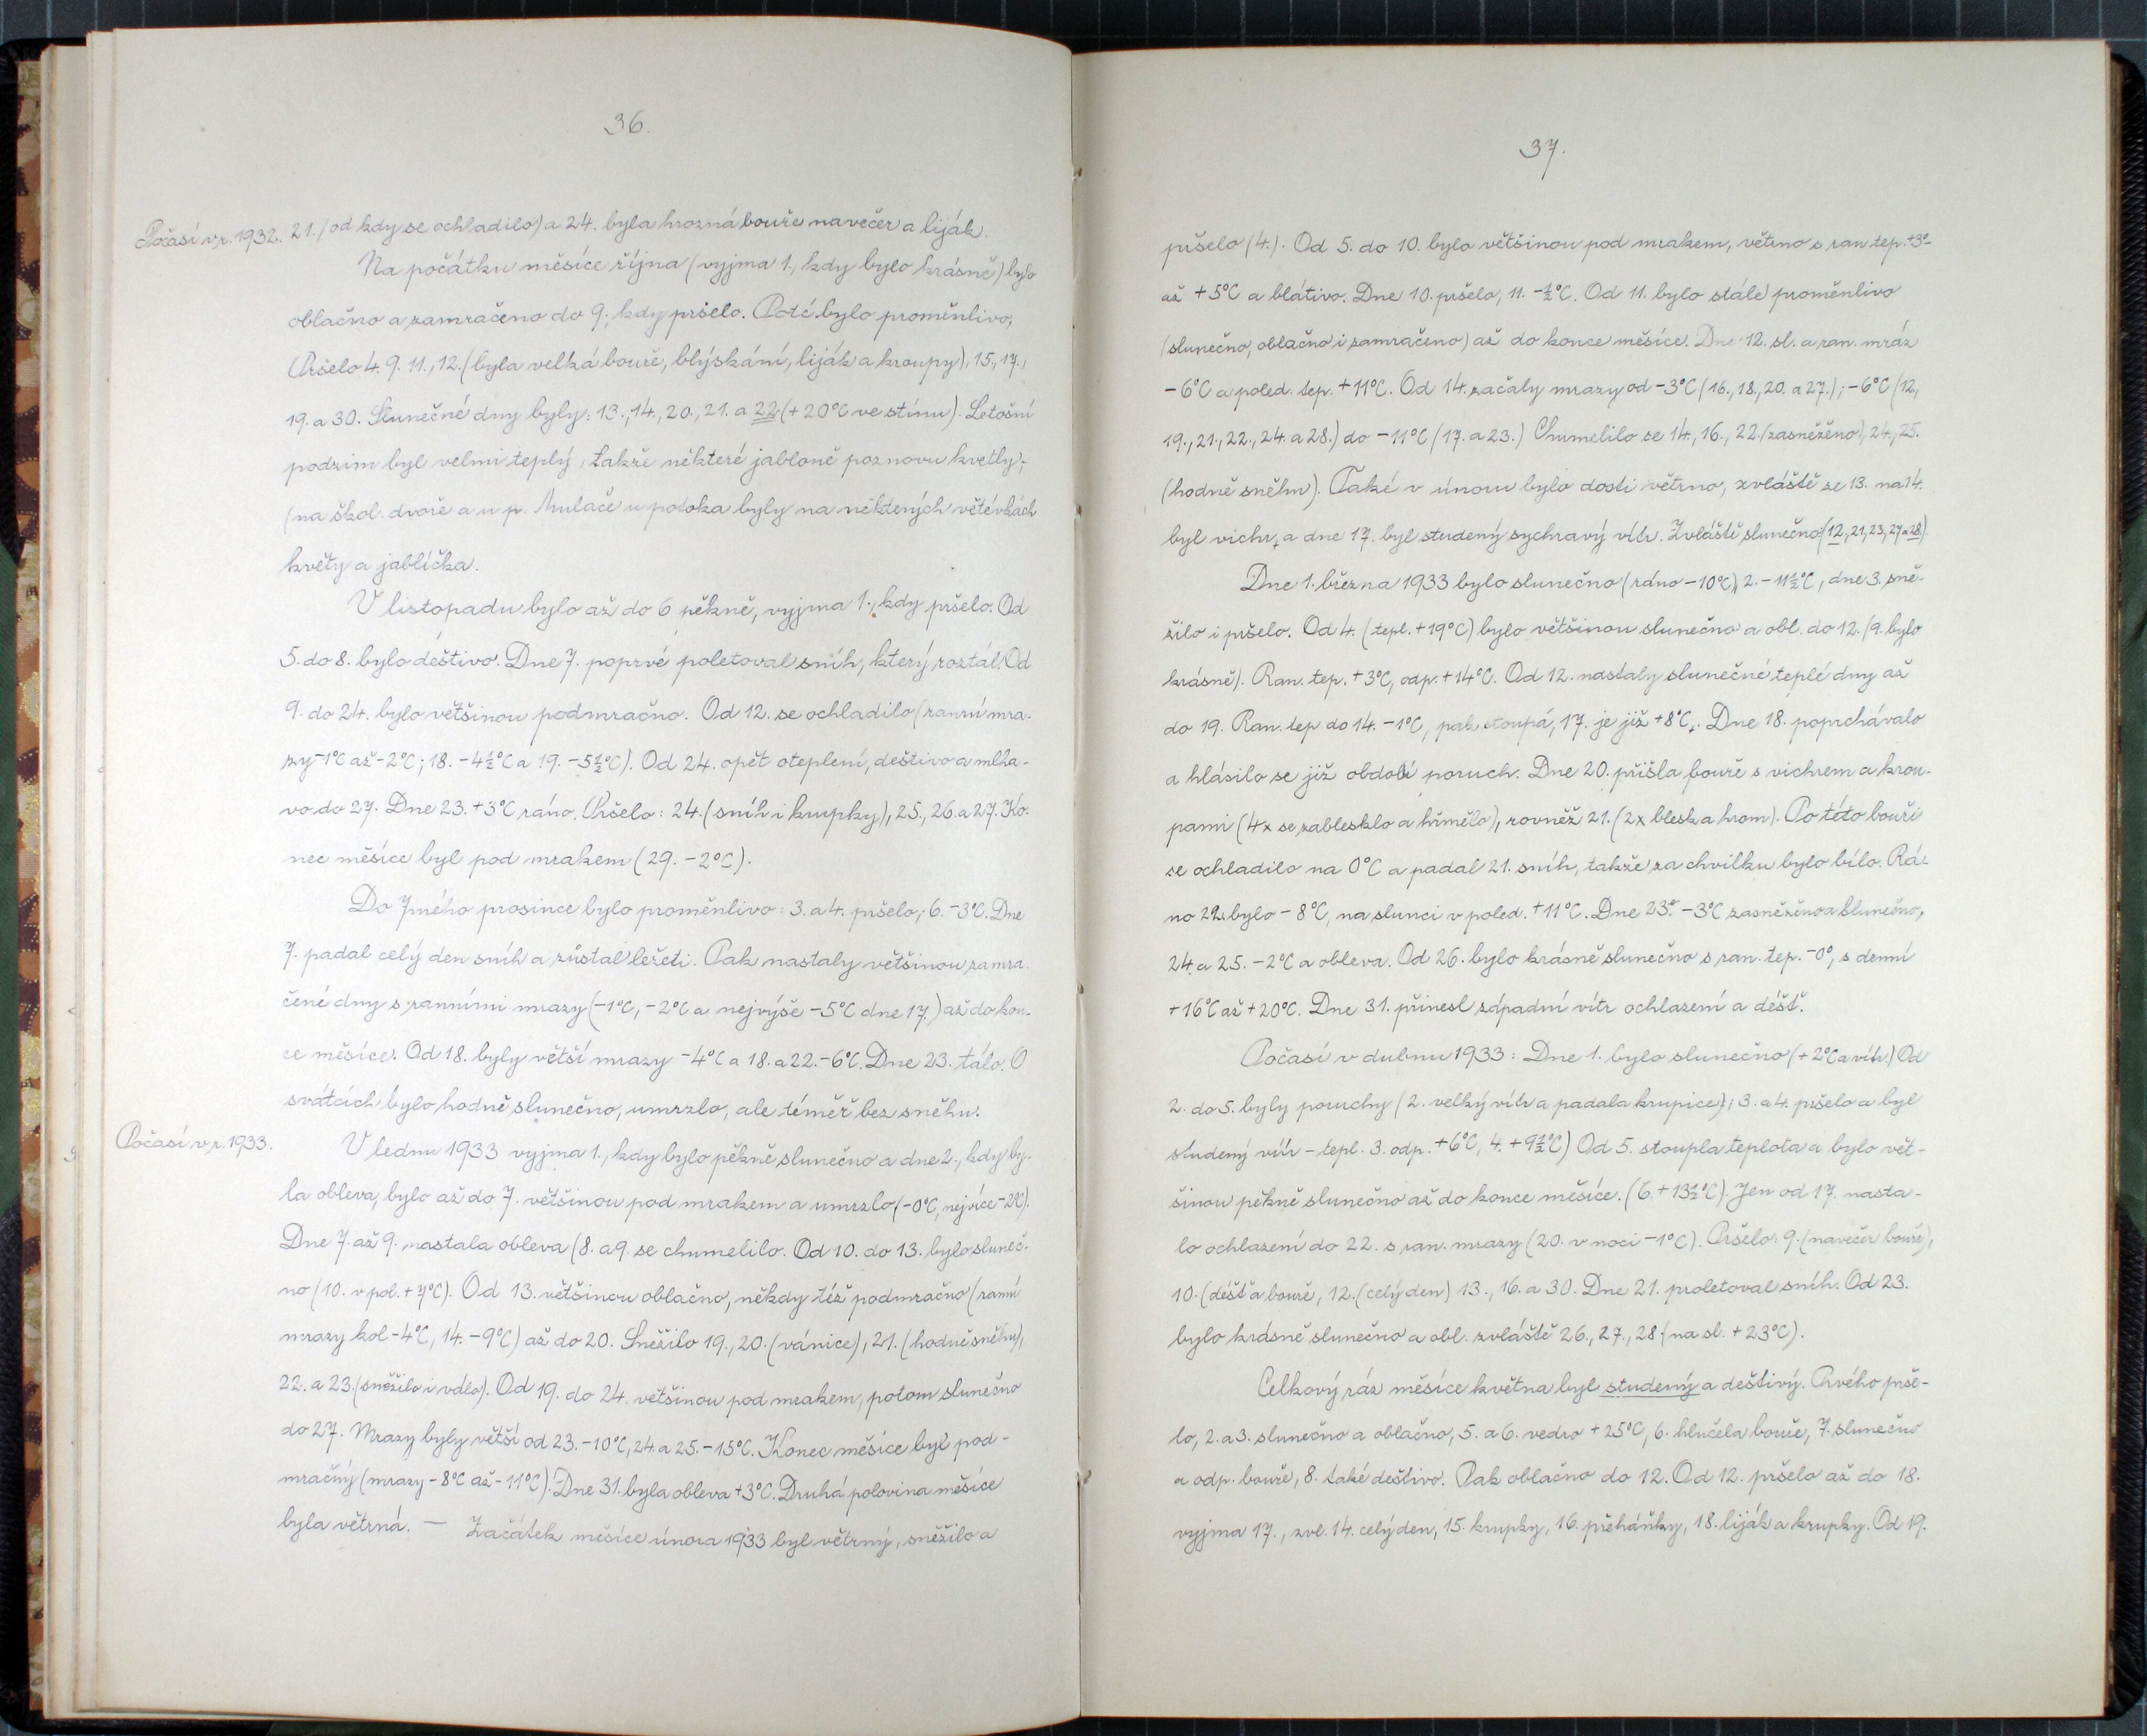 36.
Počasí v r. 1932. 21. (od kdy se ochladilo) a 24. byla hrozná bouře navečer a liják.
Na počátku měsíce října (vyjma 1., kdy bylo krásně) bylo
oblačno a zamračeno do 9., kdy pršelo. Poté bylo proměnlivo,
(Pršelo 4. 9. 11., 12. (byla velká bouře, blýskání, liják a kroupy), 15., 17.,
19. a 30. Slunečné dny byly: 13., 14., 20., 21. a 22. (+20°C ve stínu). Letošní
podzim byl velmi teplý, takže některé jabloně poznovu kvetly;
(na škol. dvoře a u p. Mulače u potoka byly na některých větévkách
květy a jablíčka.
V listopadu bylo až do 6 pěkně, vyjma 1., kdy pršelo. Od
5. do 8. bylo deštivo. Dne 7. poprvé poletoval sníh, který roztál. Od
9. do 24. bylo většinou podmračno. Od 12. se ochladilo (ranní mra-
zy -1°C až -2°C; 18. -4½°C a 19. -5½°C). Od 24. opět oteplení, deštivo a mlha-
vo do 27. Dne 23. +3°C ráno. Pršelo: 24. (sníh i krupky), 25., 26. a 27. Ko-
nec měsíce byl pod mrakem (29. -2°C).
Do 7mého prosince bylo proměnlivo: 3. a 4. pršelo, 6. -3°C. Dne
7. padal celý den sníh a zůstal ležeti. Pak nastaly většinou zamra-
čené dny s ranními mrazy (-1°C, -2°C a nejvýše -5°C dne 17.) až do kon-
ce měsíce. Od 18. byly větší mrazy -4°C a 18. a 22. -6°C. Dne 23. tálo. O
svátcích bylo hodně slunečno, umrzlo, ale téměř bez sněhu.
Počasí v r. 1933. V lednu 1933 vyjma 1., kdy bylo pěkně slunečno a dne 2., kdy by-
la obleva, bylo až do 7. většinou pod mrakem a umrzlo (-0°C, nejvíce -2°C).
Dne 7. až 9. nastala obleva (8. a 9. se chumelilo. Od 10. do 13. bylo sluneč-
no (10. v pol. +7°C). Od 13. většinou oblačno, někdy též podmračno (ranní
mrazy kol -4°C, 14. -9°C) až do 20. Sněžilo 19., 20. (vánice), 21. (hodně sněhu),
22. a 23. (sněžilo i válo). Od 19. do 24. většinou pod mrakem, potom slunečno
do 27. Mrazy byly větší od 23. -10°C, 24. a 25. -15°C. Konec měsíce byl pod-
mračný (mrazy -8°C až -11°C). Dne 31. byla obleva +3°C. Druhá polovina měsíce
byla větrná. — Začátek měsíce února 1933 byl větrný, sněžilo a
37.
pršelo (4.). Od 5. do 10. bylo většinou pod mrakem, větrno s ran tep. +3°-
až +5°C a blátivo. Dne 10. pršelo, 11. -½°C. Od 11. bylo stále proměnlivo
(slunečno, oblačno i zamračeno) až do konce měsíce. Dne 12. sl. a ran. mráz
-6°C a poled. tep. +11°C. Od 14. začaly mrazy od -3°C (16., 18., 20. a 27.); -6°C (12.,
19., 21., 22., 24. a 28.) do -11°C (17. a 23.) Chumelilo se 14., 16., 22. (zasněženo), 24., 25.
(hodně sněhu). Také v únoru bylo dosti větrno, zvláště ze 13. na 14.
byl vichr, a dne 17. byl studený sychravý vítr. Zvláště slunečno (12., 21, 23, 27 a 28)
Dne 1. března 1933 bylo slunečno (ráno -10°C), 2. -11½°C, dne 3. sně-
žilo i pršelo. Od 4. (tepl. +19°C) bylo většinou slunečno a obl. do 12. (9. bylo
krásně). Ran. tep. +3°C, odp. +14°C. Od 12. nastaly slunečné teplé dny až
do 19. Ran. tep do 14. -1°C, pak stoupá, 17. je již +8°C. Dne 18. poprchávalo
a hlásilo se již období poruch. Dne 20. přišla bouře s vichrem a krou-
pami (4x se zablesklo a hřmělo), rovněž 21. (2x blesk a hrom). Po této bouři
se ochladilo na 0°C a padal 21. sníh, takže za chvilku bylo bílo. Rá-
no 22. bylo -8°C, na slunci v poled. +11°C. Dne 23. -3°C zasněženo a slunečno,
24. a 25. -2°C a obleva. Od 26. bylo krásně slunečno s ran. tep. -0°, s denní
+16°C až +20°C. Dne 31. přinesl západní vítr ochlazení a déšť.
Počasí v dubnu 1933: Dne 1. bylo slunečno (+2°C a vítr.) Od
2. do 5. byly poruchy (2. velký vítr a padala krupice), 3. a 4. pršelo a byl
studený vítr - tepl. 3. odp. +6°C, 4. +9½°C) Od 5. stoupla teplota a bylo vět-
šinou pěkně slunečno až do konce měsíce. (6. +13½°C). Jen od 17. nasta-
lo ochlazení do 22. s ran. mrazy (20. v noci -1°C). Pršelo: 9. (navečer bouře),
10. (déšť a bouře, 12. (celý den) 13., 16. a 30. Dne 21. proletoval sníh. Od 23.
bylo krásně slunečno a obl. zvláště 26., 27., 28. (na sl. +23°C).
Celkový ráz měsíce května byl studený a deštivý. Prvého prše-
lo, 2. a 3. slunečno a oblačno, 5. a 6. vedro +25°C, 6. hlučela bouře, 7. slunečno
a odp. bouře, 8. také deštivo. Pak oblačno do 12. Od 12. pršelo až do 18.
vyjma 17., zvl. 14. celý den, 15. krupky, 16. přeháňky, 18. liják a krupky. Od 19.